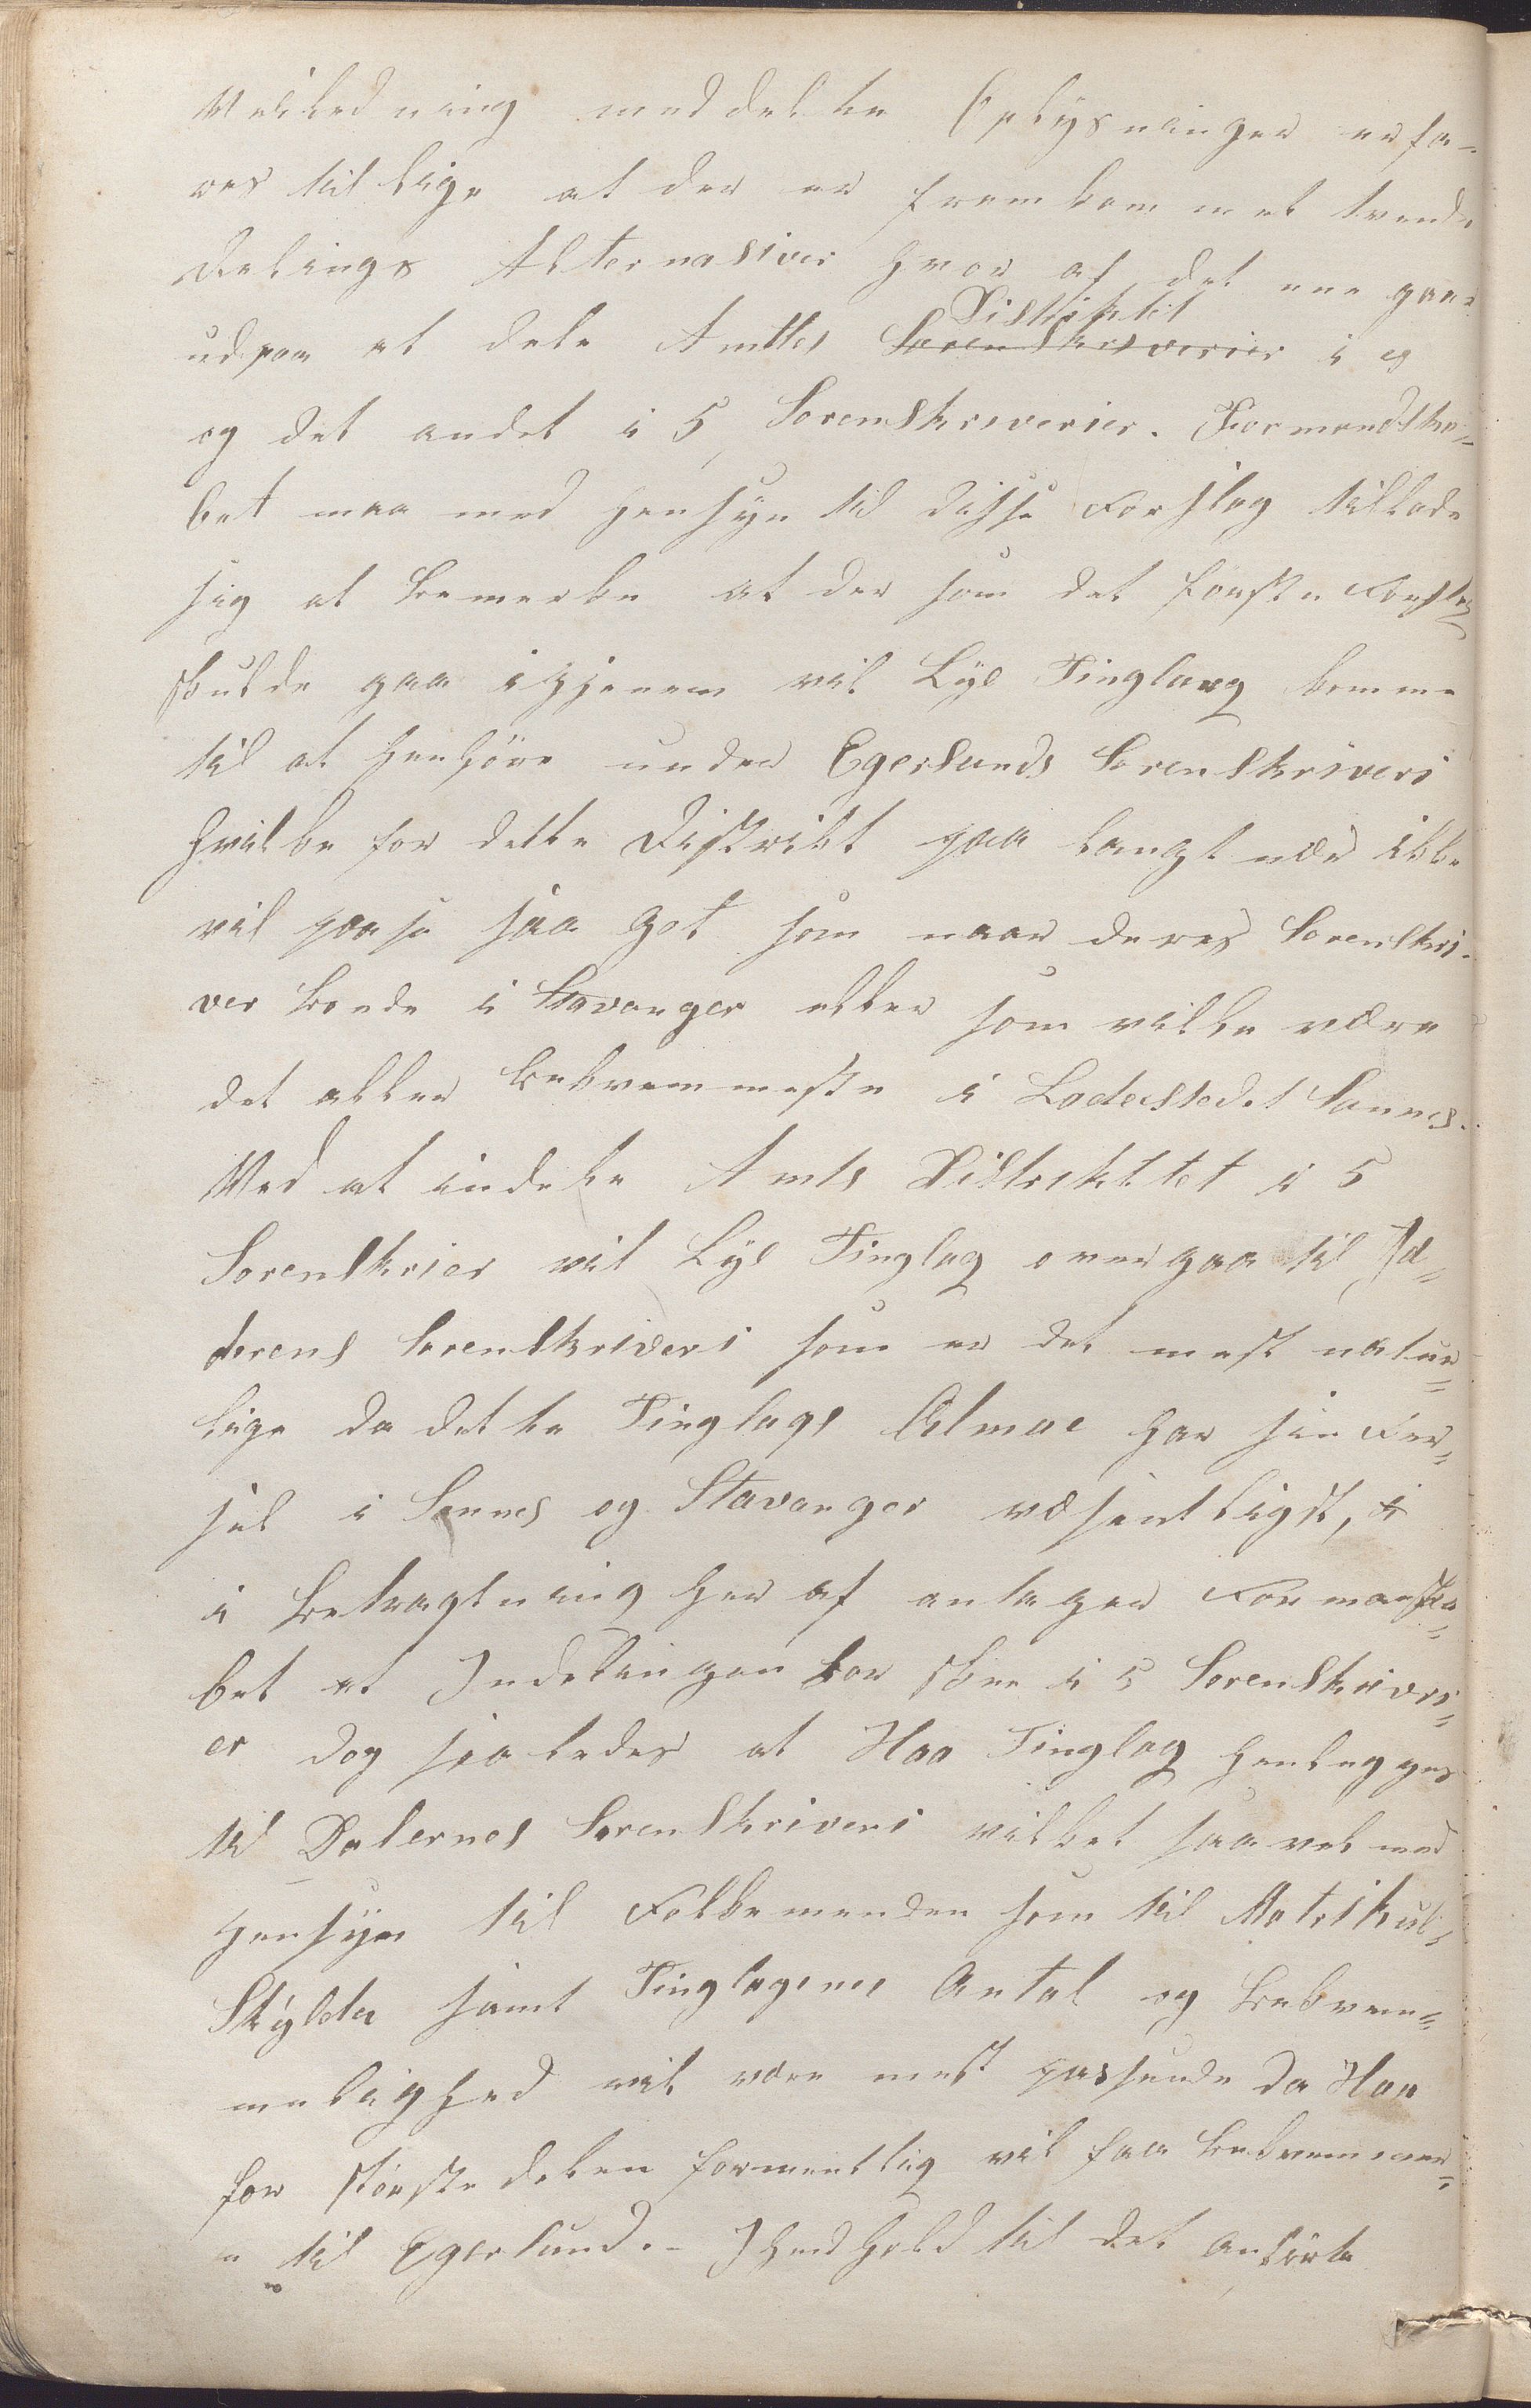 Veiledning meddelte Oplysninger erfa-
res tillige at der er fremkommet tvende
Delings Alternasiver hvor af det ene gaar
Distriktet
udpaa at dele Amtes Sorenskriverier i 4
og det andet i 5 Sorenskriverier. Formandska-
bet maa med Hensyn til disse Forslag tillade
sig at bemerke at der som det første Forslag
skulde gaa igjenem vil Lye Tinglaug komme
til at henhøre under Egersunds Sorenskriveri
hvilke for dette Distrikt paa langt nær ikke
vil passe saa got som naar deres Sorenskri-
ver boede i Stavanger eller som vilde være
det aller bekvemmeste i Ladestedet Sannes.
Ved at indele Amts Distriktet i 5
Sorenskrier vil Lye Tinglag overgaa til Jæ-
derens Sorenskriveri som er det mest natur-
lige da dette Tinglags Almue har sin Fer-
sel i Sannes og Stavanger væsentligst,
i Betragtning her af antager Formanska-
bet at Indelingen bør skee i 5 Sorenskriveri-
er dog saaledes at Haa Tinglag henlegges
til Dalernes Sorenskriveri vilket saavel med
Hensyn til Folkemenden som til Matrikul-
Skylden samt Tinglagenes Antal og bekvem-
melighed vil være mest passende da Haa
for største delen formentlig vil faa bekvemmer-
e til Egersund. - I Hendhold til det anførte